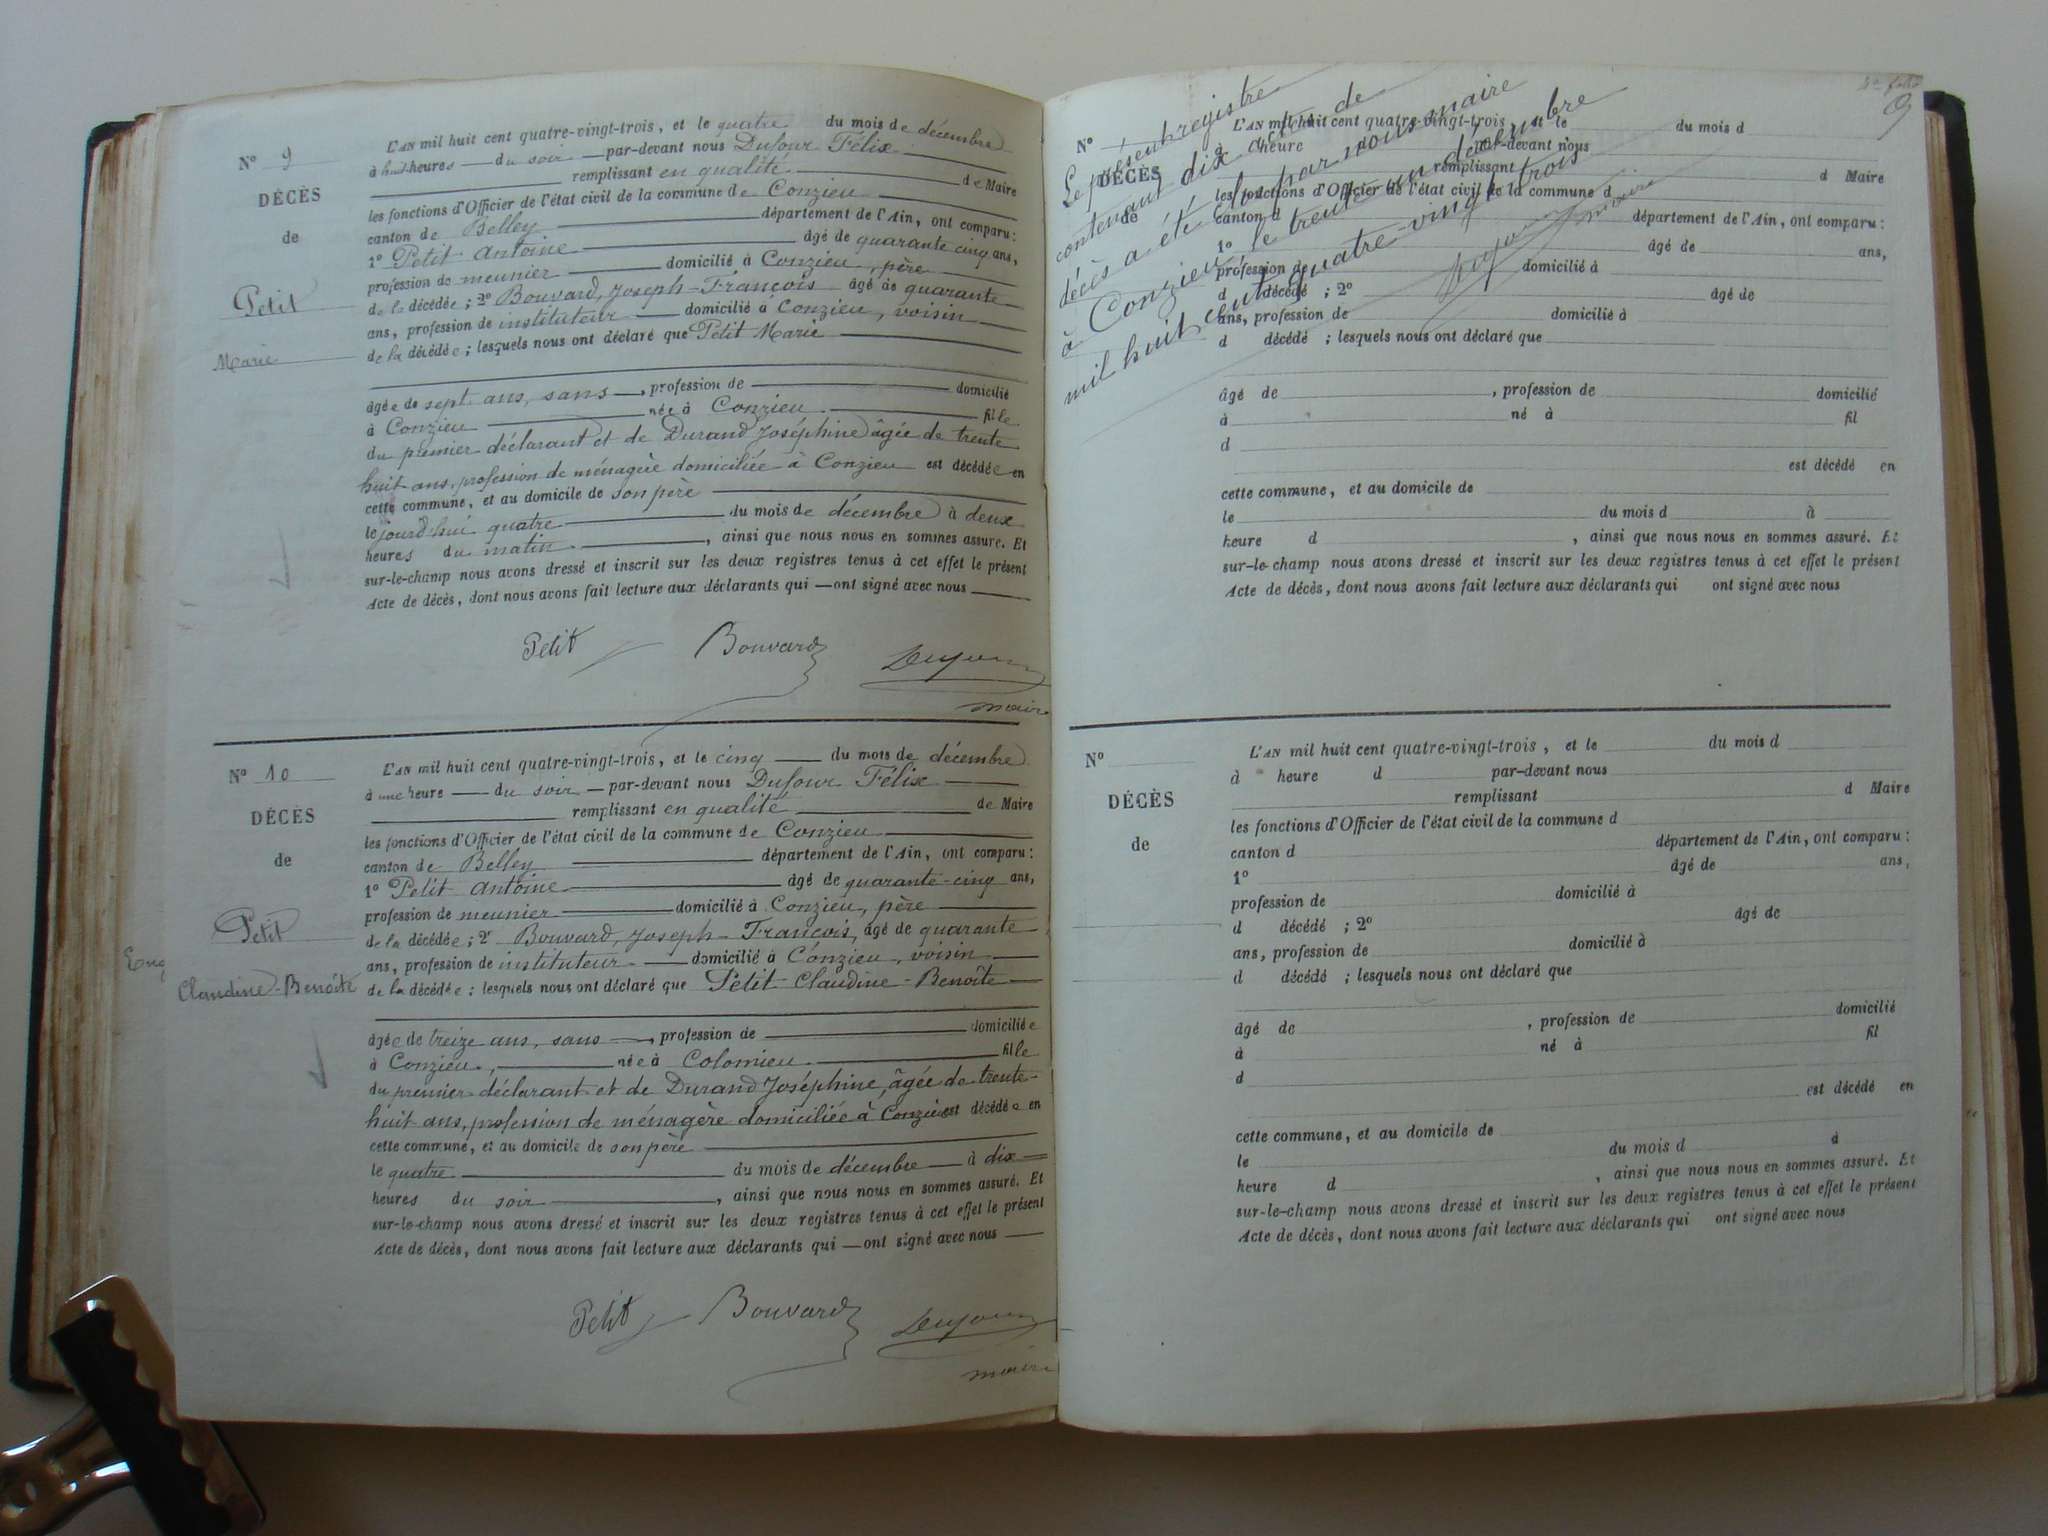 N° 9
DÉCÈS
de
Petit
Marie
L'AN mil huit cent quatre-vingt-trois, et le quatre du mois de décembre
à huit heures du soir par-devant nous Dufour Félix
remplissant en qualité de Maire
les fonctions d'Officier de l'état civil de la commune de Conzieu
canton de Belley département de l'Ain, ont comparu:
1° Petit Antoine âgé de quarante cinq ans,
profession de meunier domicilié à Conzieu, père
de la décédée; 2° Bouvard, Joseph-François âgé de quarante
ans, profession de instituteur domicilié à Conzieu, voisin
de la décédée; lesquels nous ont déclaré que Petit Marie
âgée de sept ans, sans, profession de domicilié
à Conzieu née à Conzieu fille
du premier déclarant et de Durand Joséphine âgée de trente
huit ans, profession de ménagère domiciliée à Conzieu est décédée en
cette commune, et au domicile de son père
le jourd'hui quatre du mois de décembre à deux
heures du matin, ainsi que nous nous en sommes assuré. Et
sur-le-champ nous avons dressé et inscrit sur les deux registres tenus à cet effet le présent
Acte de décès, dont nous avons fait lecture aux déclarants qui ont signé avec nous
Petit Bouvard Dufour
maire
N° 10
DÉCÈS
de
Petit
Claudine-Benoîte
L'AN mil huit cent quatre-vingt-trois, et le cinq du mois de décembre
à une heure du soir par-devant nous Dufour Félix
remplissant en qualité de Maire
les fonctions d'Officier de l'état civil de la commune de Conzieu
canton de Belley département de l'Ain, ont comparu:
1° Petit Antoine âgé de quarante-cinq ans,
profession de meunier domicilié à Conzieu, père
de la décédée; 2° Bouvard, Joseph-François, âgé de quarante
ans, profession de instituteur domicilié à Conzieu, voisin
de la décédée; lesquels nous ont déclaré que Petit Claudine-Benoîte
âgée de treize ans, sans, profession de domiciliée
à Conzieu, née à Colomieu fille
du premier déclarant et de Durand Joséphine, âgée de trente-
huit ans, profession de ménagère domiciliée à Conzieu est décédée en
cette commune, et au domicile de son père
le quatre du mois de décembre à dix
heures du soir, ainsi que nous nous en sommes assuré. Et
sur-le-champ nous avons dressé et inscrit sur les deux registres tenus à cet effet le présent
Acte de décès, dont nous avons fait lecture aux déclarants qui ont signé avec nous
Petit Bouvard Dufour
maire
9
Le présent registre
contenant dix actes de
décès a été clos par nous maire
à Conzieu le trente un décembre
mil huit cent quatre-vingt trois
maire
N°
DÉCÈS
de
L'AN mil huit cent quatre-vingt-trois, et le du mois d
à heure d par-devant nous
remplissant d Maire
les fonctions d'Officier de l'état civil de la commune d
canton d département de l'Ain, ont comparu:
1° âgé de ans,
profession de domicilié à
d décédé; 2° âgé de
ans, profession de domicilié à
d décédé; lesquels nous ont déclaré que
âgé de, profession de domicilié
à né à fil
d
est décédé en
cette commune, et au domicile de
le du mois d à
heure d, ainsi que nous nous en sommes assuré. Et
sur-le-champ nous avons dressé et inscrit sur les deux registres tenus à cet effet le présent
Acte de décès, dont nous avons fait lecture aux déclarants qui ont signé avec nous
N°
DÉCÈS
de
L'AN mil huit cent quatre-vingt-trois, et le du mois d
à heure d par-devant nous
remplissant d Maire
les fonctions d'Officier de l'état civil de la commune d
canton d département de l'Ain, ont comparu:
1° âgé de ans,
profession de domicilié à
d décédé; 2° âgé de
ans, profession de domicilié à
d décédé; lesquels nous ont déclaré que
âgé de, profession de domicilié
à né à fil
d
est décédé en
cette commune, et au domicile de
le du mois d à
heure d, ainsi que nous nous en sommes assuré. Et
sur-le-champ nous avons dressé et inscrit sur les deux registres tenus à cet effet le présent
Acte de décès, dont nous avons fait lecture aux déclarants qui ont signé avec nous